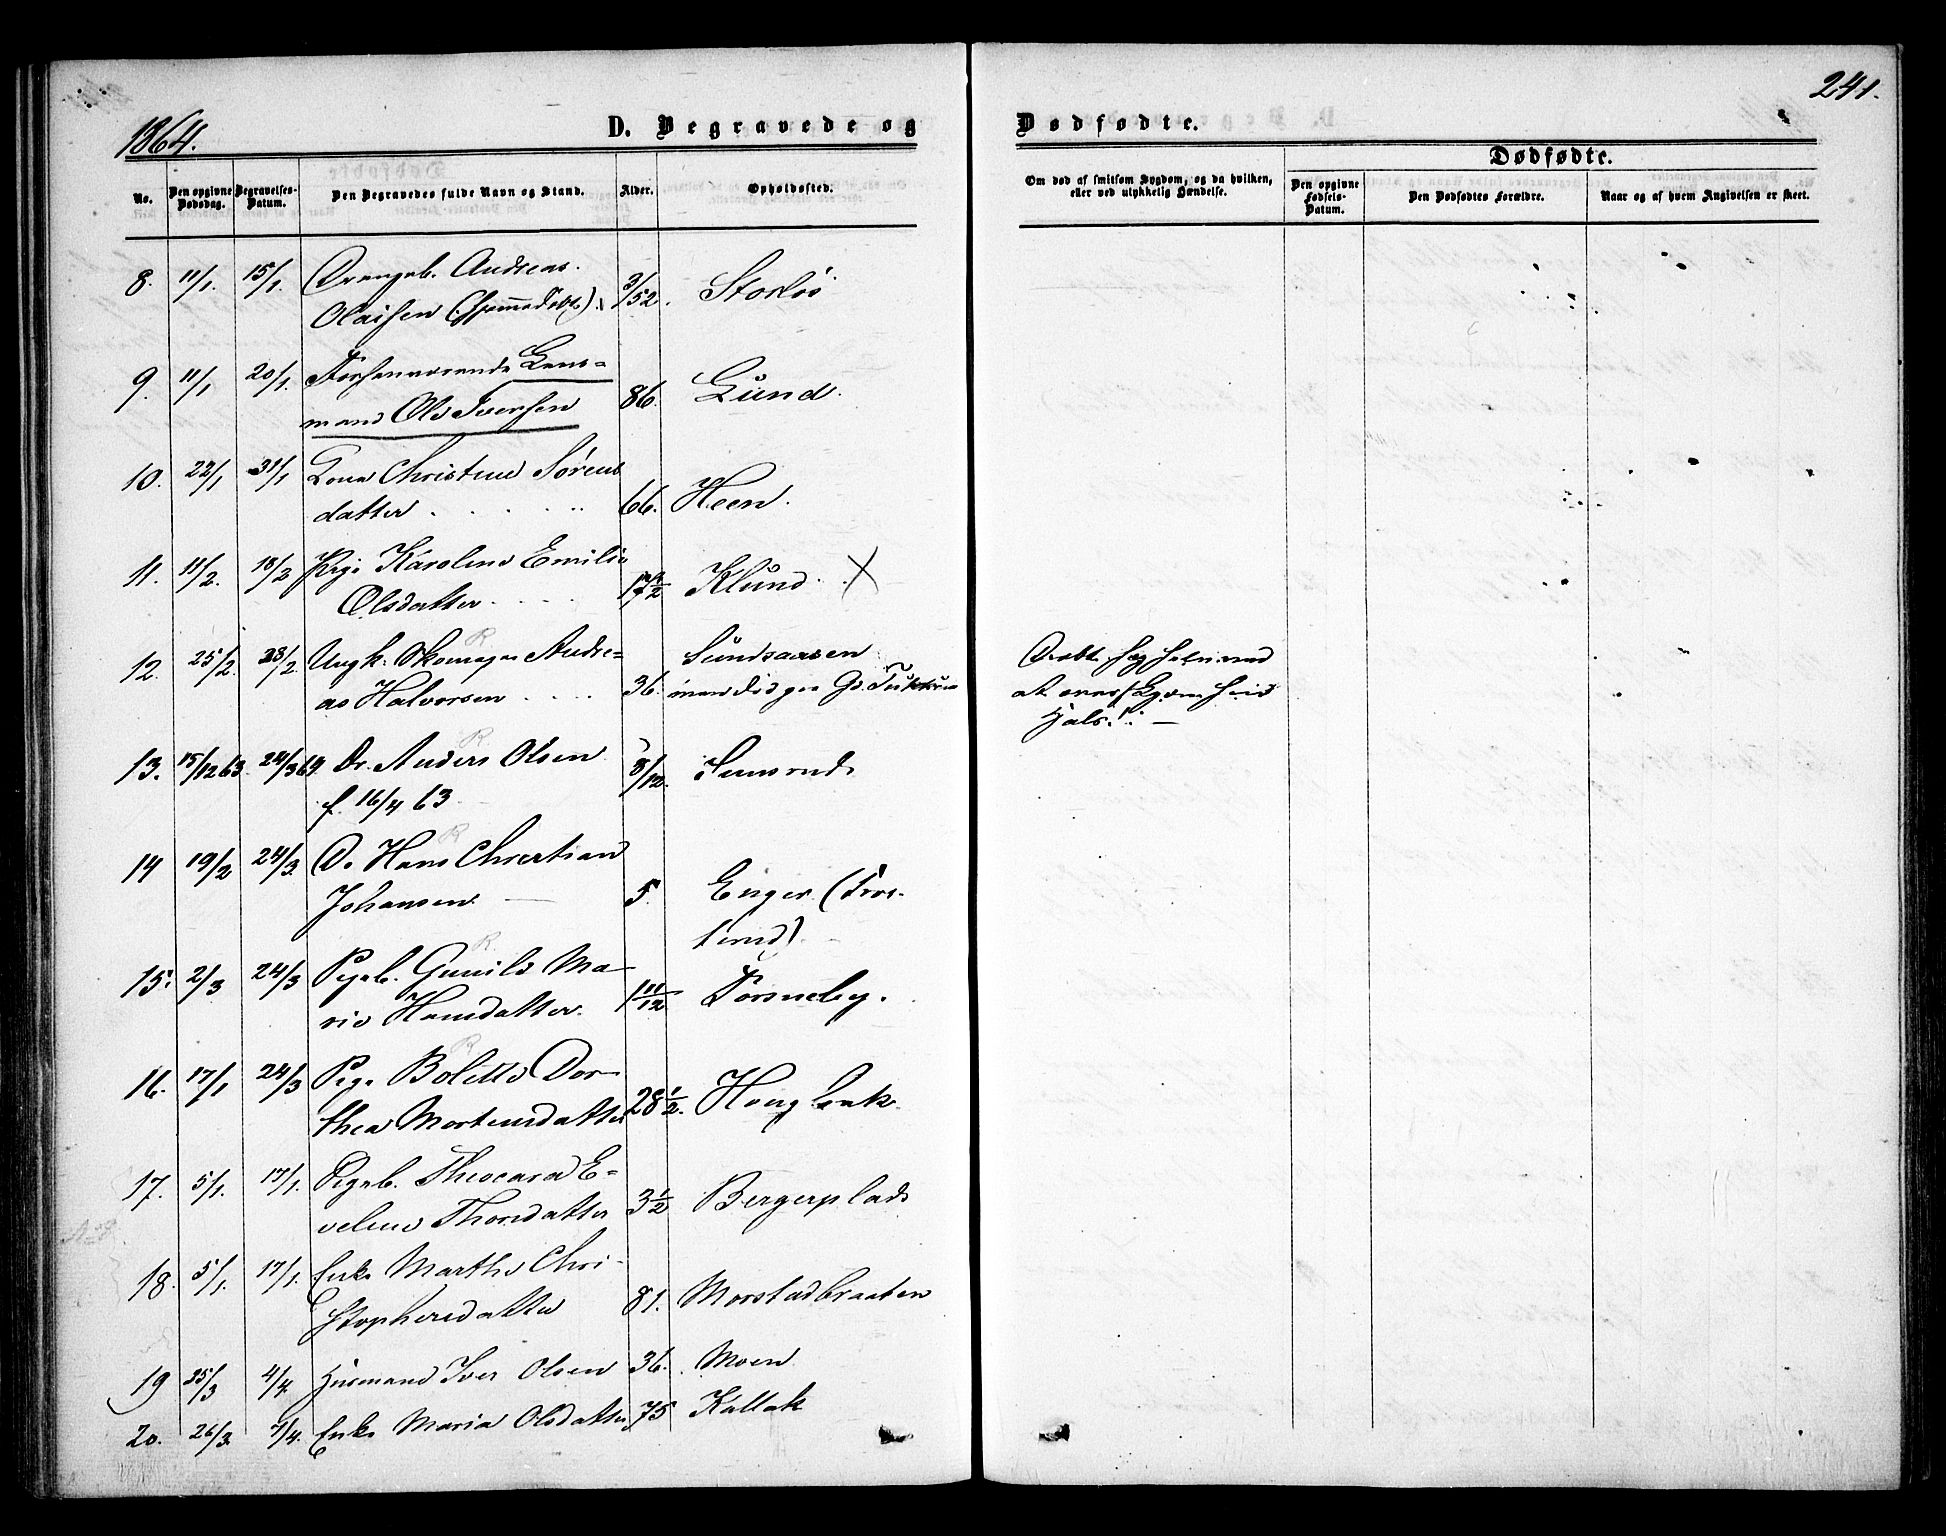 241.
1864.
D. Begravede og Dødfødte.
Dødfødte.
No.
Den opgivne Dødsdag.
Begravelses-Datum.
Den Begravedes fulde Navn og Stand.
Alder.
Opholdssted.
Om død af smitsom Sygdom, og da hvilken, eller ved ulykkelig Hændelse.
Den opgivne Fødsels-Datum.
Den Dødfødtes Forældre.
Naar og af hvem Angivelsen er skeet.
8. 11/1. 15/1. Drengeb. Andreas
Olaisen (Hjemmedøbt) 3/52. Storløs
9. 11/1 20/1. Forhenværende Lens=
mand Ole Iversen 86. Lund.
10. 22/1 31/1 Kone Christine Sørens
datter 66. Heen.
11. 11/2. 18/2 Pige Karoline Emilie
Olsdatter 17 1/2 Klund. X
12. 25/2. 28/2. Ungk. Skomager Andre=
as Halvorsen 36. Sundsaasen
Dræbte sig selv ved
at
Hals.
13. 15/12 63. 24/3 64. Dr. Anders Olsen
f. 16/4 63 8/12.
14 19/2 24/3. D. Hans Christian
Johansen 5 Enger
15. 2/3 24/3 Pigeb. Gunild Ma-
rie Hansdatter. 1 11/12
16. 17/1 24/3 Pige Bolette Dor-
thea Mortensdatter 28 1/2. Hougbak.
17. 5/1. 17/1. Pigeb. Theocara E=
veline Thorsdatter 3 1/2 Bergerplads
18. 5/1. 17/1. Enke Marthe Chri-
stophersdatter 81. Morstadbraaten
19 25/3 4/4. Husmand Iver Olsen 36. Moen
20. 26/3. 4/4. Enke Maria Olsdatter 75 Kallak